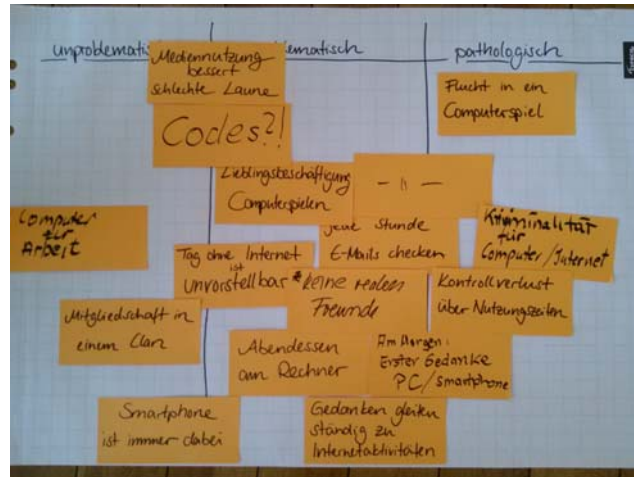 unproblematis
matisch
pathologisch
Mediennutzung
bessert
schlechte Laune
Codes?!
Flucht in ein
Computerspiel
Lieblingsbeschäftigung
Computerspielen
— " —
jede Stunde
E-Mails checken
Kriminalität
für
Computer/Internet
Computer
für
Arbeit
Tag ohne Internet
ist
unvorstellbar
keine realen
Freunde
Kontrollverlust
über Nutzungszeiten
Mitgliedschaft in
einem Clan
Abendessen
am Rechner
Am Morgen:
Erster Gedanke
PC/Smartphone
Smartphone
ist immer dabei
Gedanken gleiten
ständig zu
Internetaktivitäten